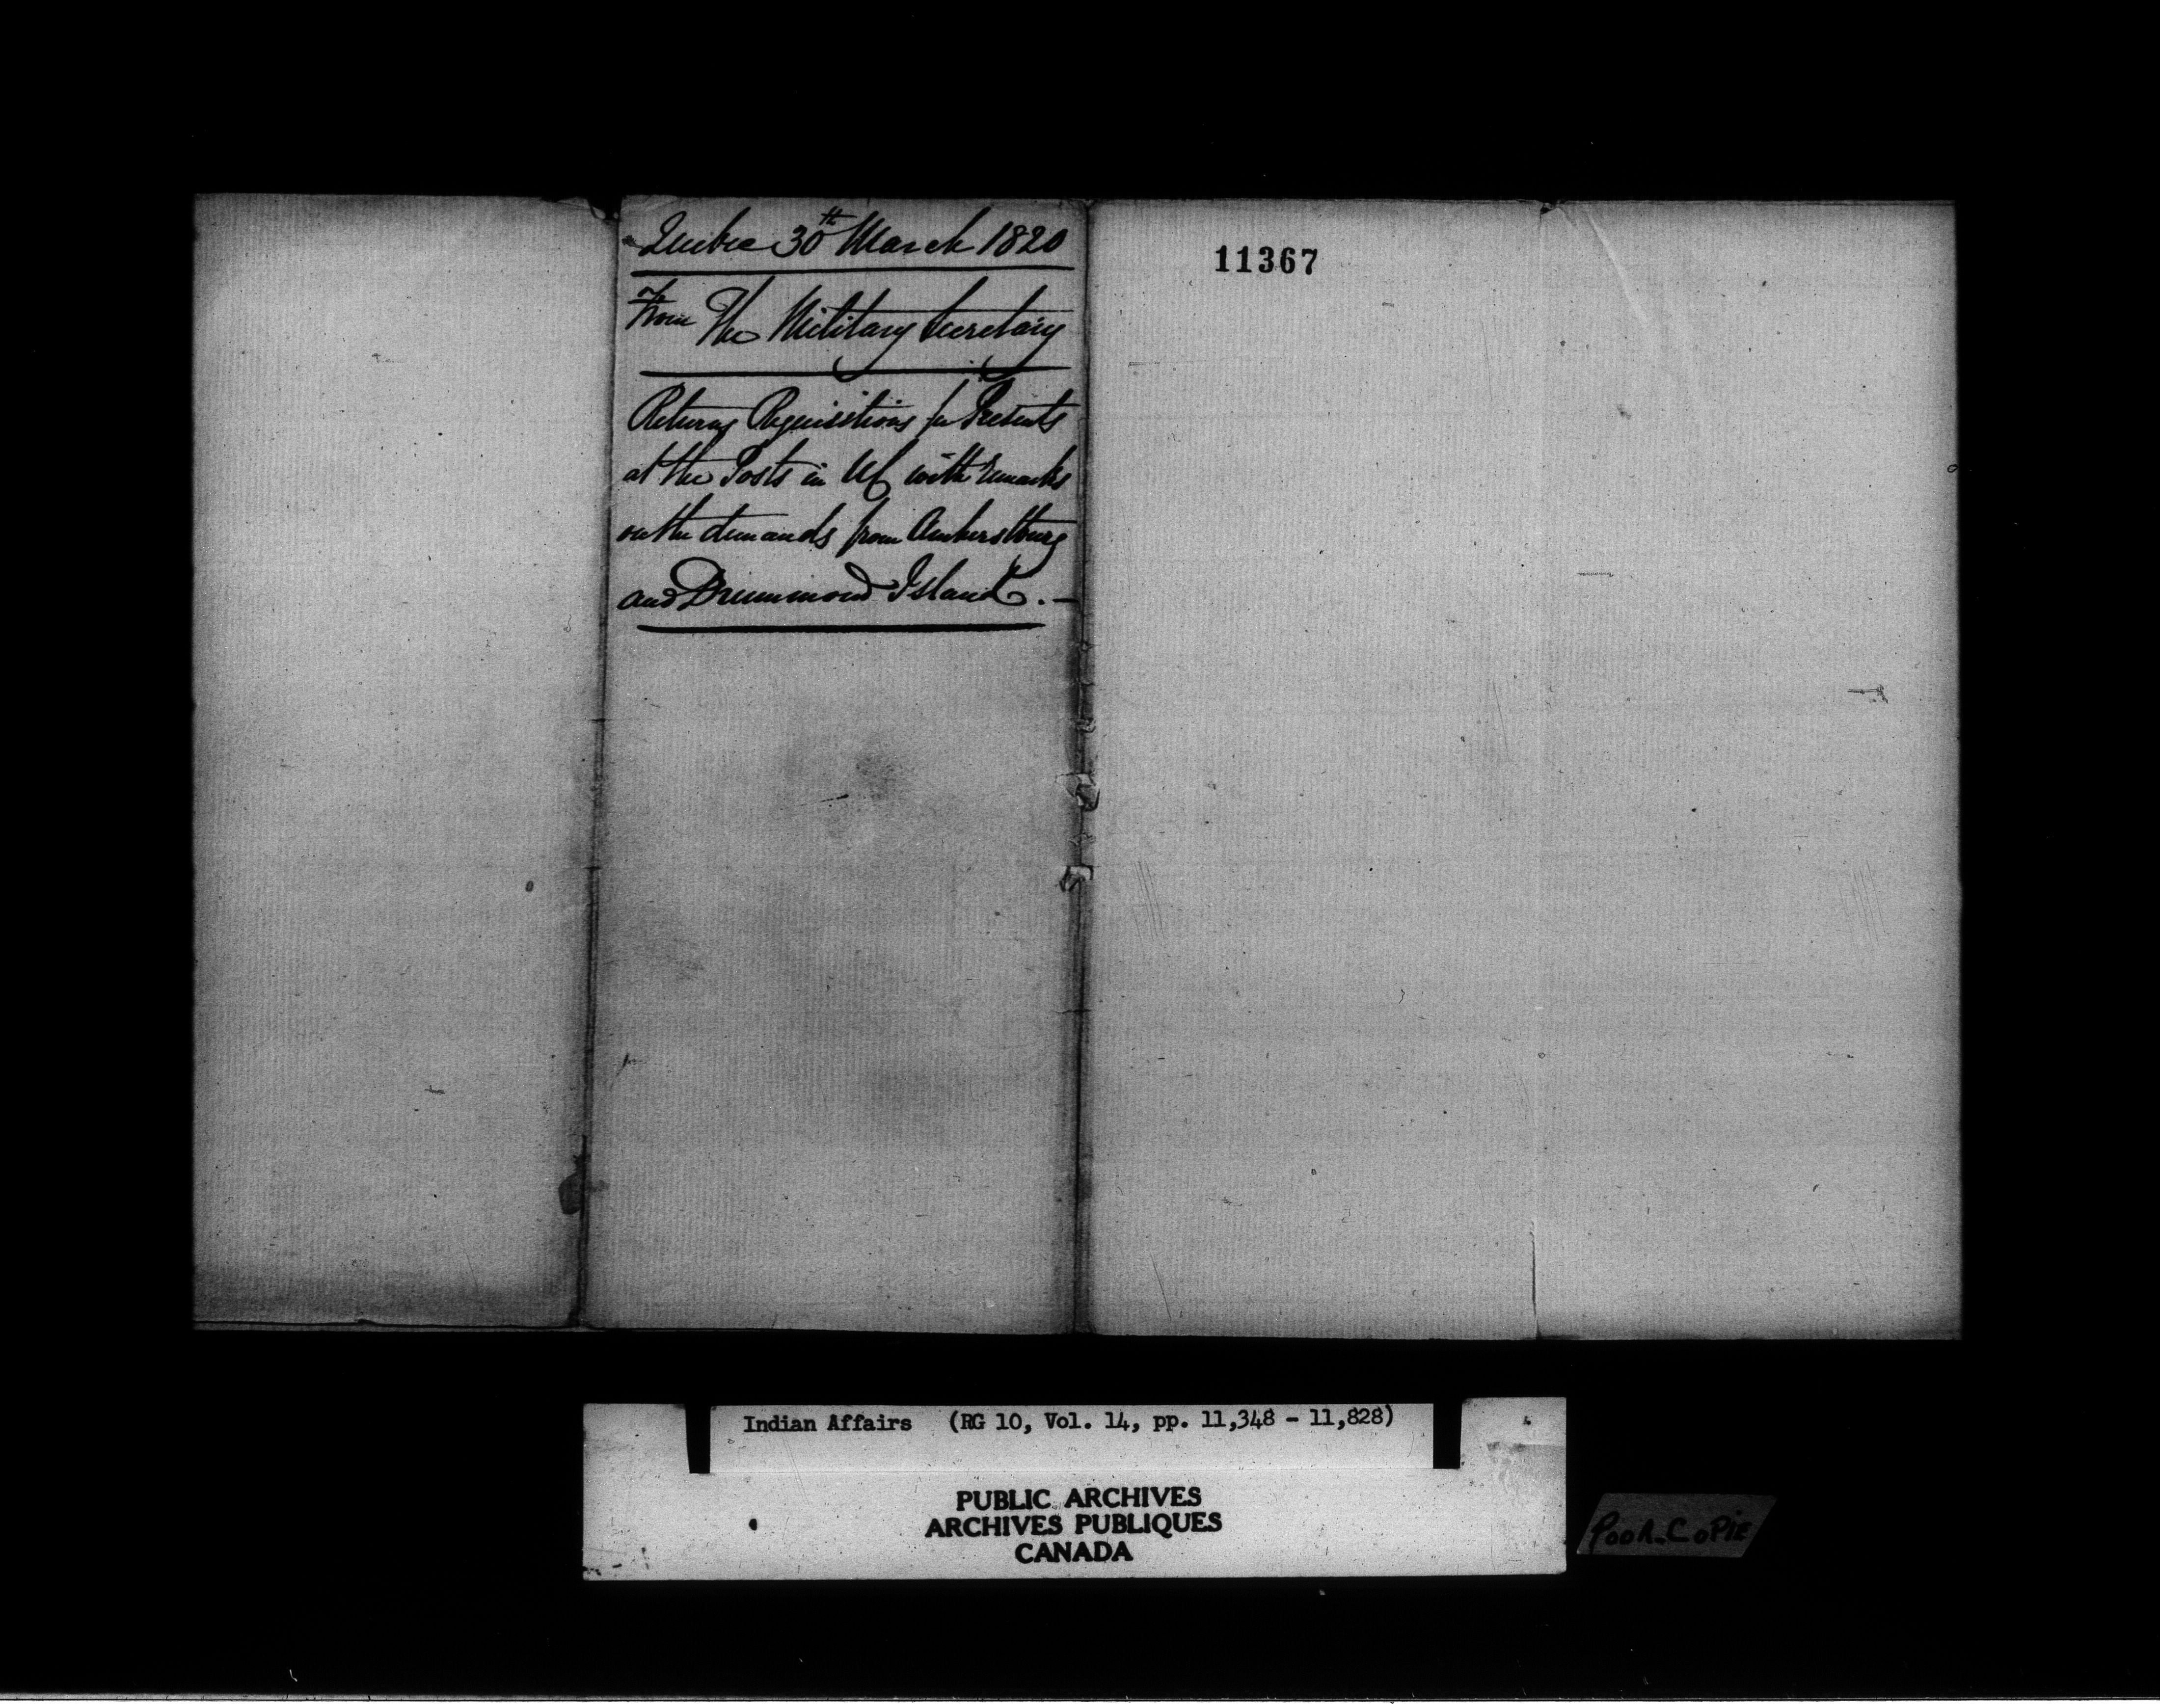 Quebec 30th March 1820
From The Military Secretary
Returns Requisitions for Presents
at the Posts in UC with remarks
on the demands from Amherstburg
and Drummond Island. –
11367
Indian Affairs (RG 10, Vol. 14, pp. 11,348 - 11,828)
PUBLIC ARCHIVES
ARCHIVES PUBLIQUES
CANADA
POOR COPIE